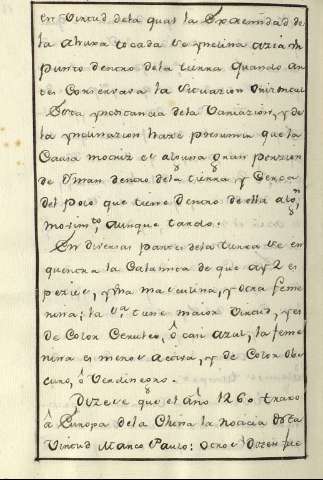 en Virtud dela qual la Extremidad de
la ahuxa tocada se ynclina azia un
punto dentro dela tierra quando an
tes Conservava la situazion Orizontal
Esta ynconstancia dela Variazion, y de
la ynclinazion haze presumir que la
Causa motriz es alguna gran porzion
de Yman dentro dela tierra y Cerca
del Polo que tiene dentro de ella algn
movimto, aunque tardo.
En diversas partes dela tierra se en
quentra la Calamita de que ay 2 es
pezies, yna masculina, y otra feme
nina; la 1ra tiene maior Virtud, y es
de Color Ceruleo, ô casi azul; la feme
nina es menos activa, y de Color obs
curo, ô Verdinegro.
Dizese que el año 1260 traxo
â Europa dela China la noticia desta
Virtud Marco Paulo: otros Dizen fue